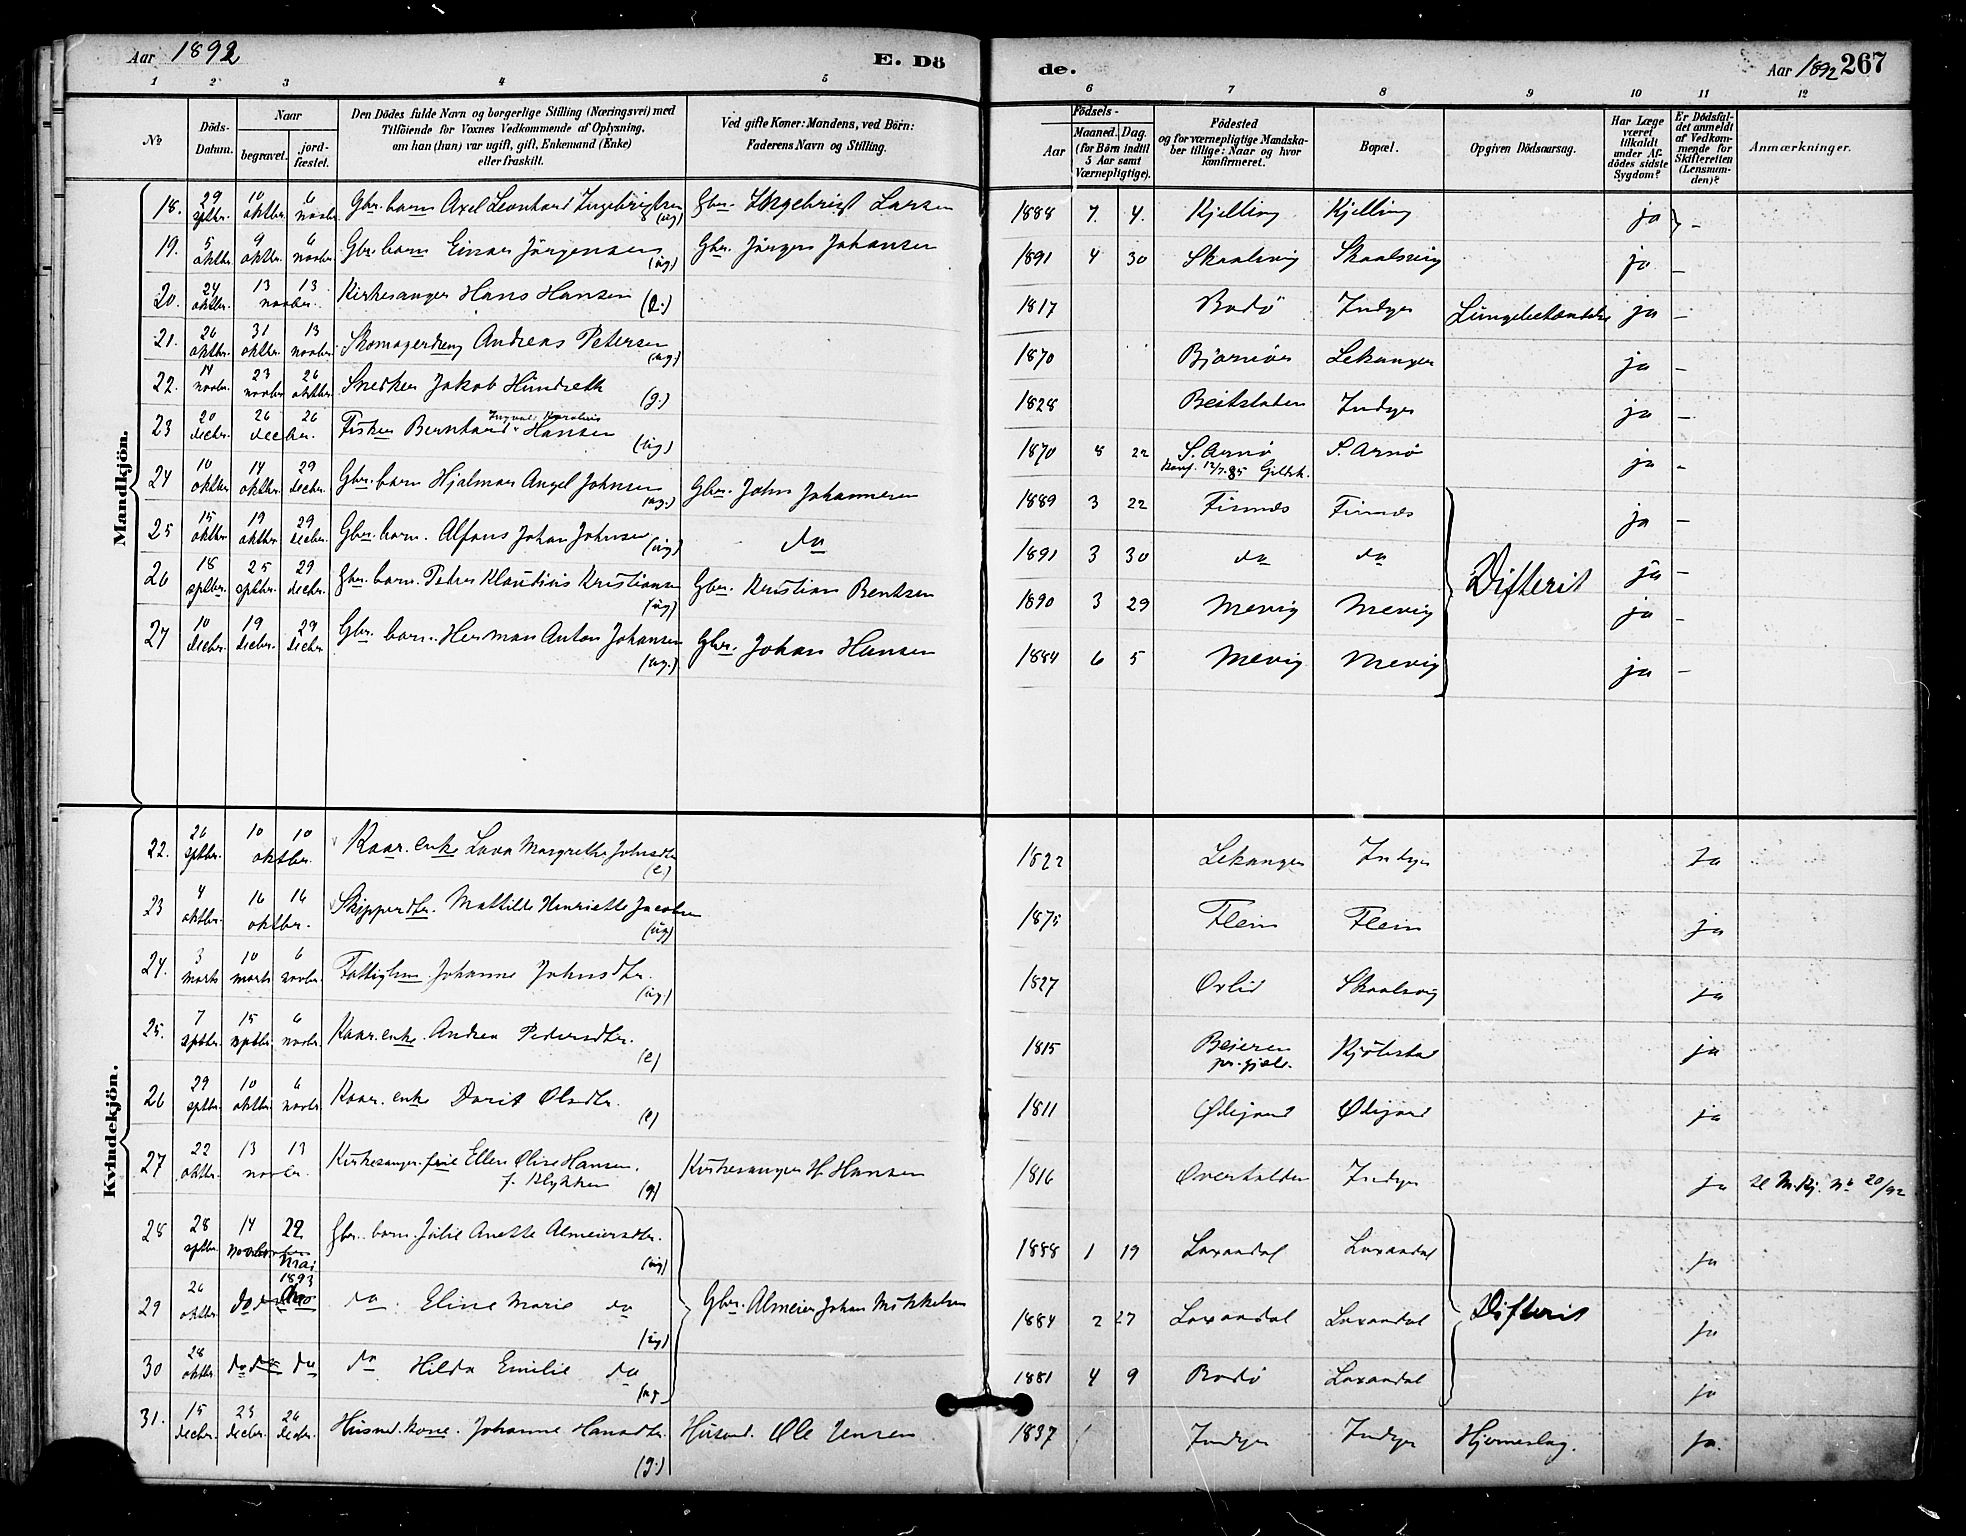 Aar 1892
E. Dö
de.
Aar 1892 267
1 2 3 4 5 6 7 8 9 10 11 12
No.
Döds-Datum.
Naar
begravet.
jord-fæstet.
Den Dödes fulde Navn og borgerlige Stilling (Næringsvei) med
Tilföiende for Voxnes Vedkommende af Oplysning,
om han (hun) var ugift, gift, Enkemand (Enke)
eller fraskilt.
Ved gifte Koner: Mandens, ved Börn:
Faderens Navn og Stilling.
Födsels-
Aar
Maaned. Dag.
(for Börn indtil
5 Aar samt
Værnepligtige).
Födested
og for værnepligtige Mandska-
ber tillige: Naar og hvor
konfirmeret.
Bopæl.
Opgiven Dödsaarsag.
Har Læge
været
tilkaldt
under Af-
dödes sidste
Sygdom?
Er Dödsfal-
det anmeldt
af Vedkom-
mende for
Skifteretten
(Lensman-
den)?
Anmærkninger.
Mandkjön.
18. 29 sptbr. 10 oktbr. 6 novbr. Gbr. barn Axel Leonhard Ingebrigtsen (ug) Gbr. Ingebrigt Larsen 1888 7. 4. Kjelling Kjelling ja -
19. 5 oktbr. 9 oktbr. 6 novbr. Gbr. barn Einar Jörgensen (ug) Gbr. Jörgen Johansen 1891 4 30 Skaalsvig Skaalsvig ja -
20. 24 oktbr. 13 13 novbr. Kirkesanger Hans Hansen (e.) 1817 Bodö Indyr Lungebetændelse ja -
21. 26 oktbr. 31 oktbr. 13 novbr. Skomagerdreng Andreas Petersen (ug) 1870 Bjarnöer Lekanger ja -
22. 14 novbr. 23 novbr. 26 oktbr. Snedker Jakob Hindreth (g.) 1828 Beitstaden Indyr ja -
23 20 decbr. 26 26 decbr. Fisker Bernhard Ingval Karolius Hansen (ug) 1870 8 22 S. Arnö S. Arnö ja -
Konf. 12/7.85 Gildsk.
24 10 oktbr 14 oktbr 29 decbr. Gbr. barn Hjalmar Angel Johnsen (ug.) Gbr. John Johannesen 1889 3 22 Finnæs Finnæs ja -
25 15 oktbr 19 oktbr 29 decbr. Gbr. barn. Alfons Johan Johnsen (ug) da 1891 3 30 da da Difterit ja -
26 18 sptbr 25 sptbr. 29 decbr. Gbr. barn. Peder Klaudius Kristiansen (ug) Gbr. Kristian Bentsen 1890 3 29 Mevig Mevig ja -
27 10 decbr. 19 decbr. 29 decbr. Gbr. barn. Herman Anton Johansen (ug.) Gbr. Johan Hansen 1884 6 5 Mevig Mevig ja -
Kvindekjön.
22. 26 sptbr. 10 10 oktbr. Kaar. enke Lava Margrethe Johnsdtr (e.) 1822 Lekanger Indyr Ja
23 4 oktbr. 16 16 oktbr. Skipperdtr. Mathilde Henriette Jacobsen (ug) 1875 Flein Flein ja
24. 3 marts 10 marts 6 novbr. Fattiglem. Johanne Johnsdtr. (ug.) 1827 Övlid Skaalsvig ja
25. 7 sptbr. 15 sptbr. 6 novbr. Kaar. enke. Andrea Pedersdtr. (e) 1815 Beieren Kjölstad ja
26 29 sptbr. 10 oktbr. 6 novbr. Kaar. enke Dorit Olsdtr. (e) 1811 Öligard Öligard ja
27 22 oktbr. 13 13 novbr. Kirkesanger. frue Ellen Oline Hansen. f. Blykken (g) Kirkesanger H Hansen 1816 Overhalden Indyr ja se M.Kj. No 20/92
28 28 sptbr. 14 november 22 mai 1893 Gbr. barn. Julie Anette Almeiersdtr. (ug) 1888 1 19 Laxaadal Laxaadal ja
29 26 oktbr. do do da. Eline Marie da (ug) Gbr. Almeier Johan Mikkelsen 1884 2 27 Laxaadal Laxaadal Difterit ja
30 28 oktbr do do da da Hilda Emilie da (ug 1881 4 9 Bodö Laxaadal ja
31. 15 decbr. 23 decbr. 26 decbr. Husmd. kone. Johanne Hansdtr. (g.) Husmd. Ole Jensen 1837 Indyr Indyr Hjerneslag. ja.